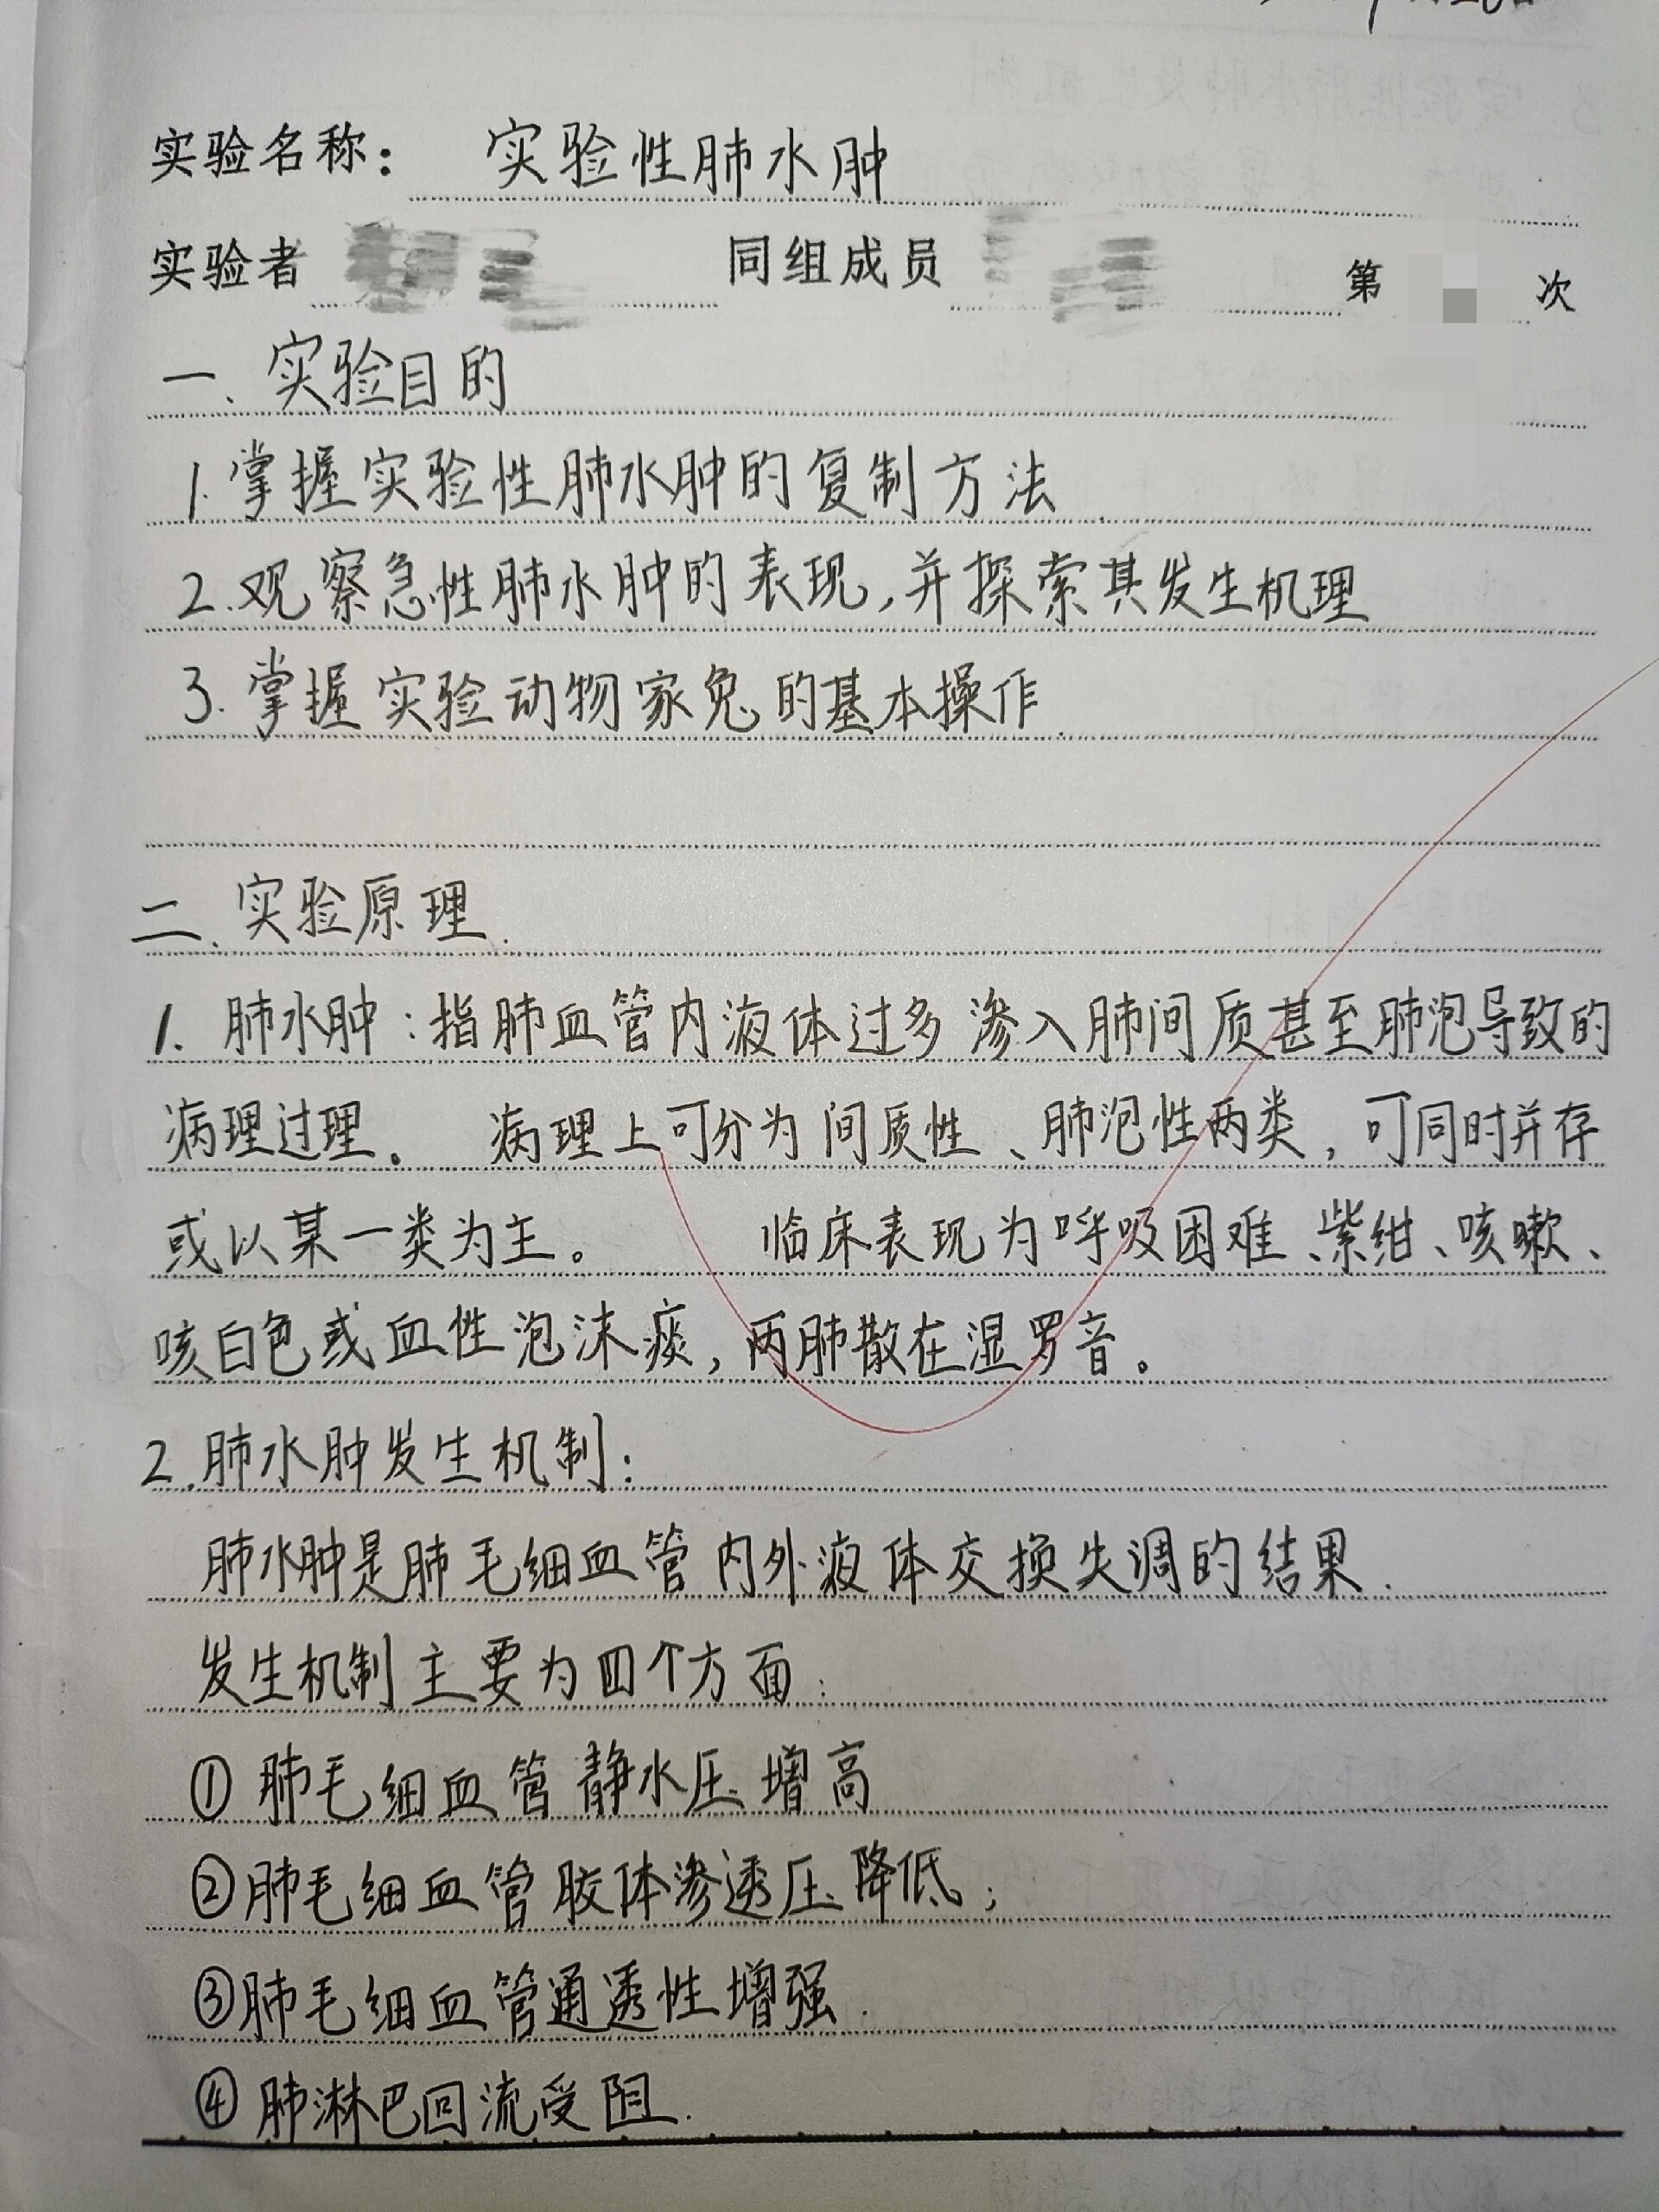 实验名称： 实验性肺水肿
实验者 同组成员 第 次
一、实验目的
1.掌握实验性肺水肿的复制方法
2.观察急性肺水肿的表现，并探索其发生机理
3.掌握实验动物家兔的基本操作.
二、实验原理.
1. 肺水肿：指肺血管内液体过多渗入肺间质甚至肺泡导致的
病理过理。 病理上可分为间质性、肺泡性两类，可同时并存
或以某一类为主。 临床表现为呼吸困难、紫绀、咳嗽、
咳白色或血性泡沫痰，两肺散在湿罗音。
2.肺水肿发生机制：
肺水肿是肺毛细血管内外液体交换失调的结果.
发生机制主要为四个方面：
①肺毛细血管静水压增高
②肺毛细血管胶体渗透压降低；
③肺毛细血管通透性增强.
④肺淋巴回流受阻.